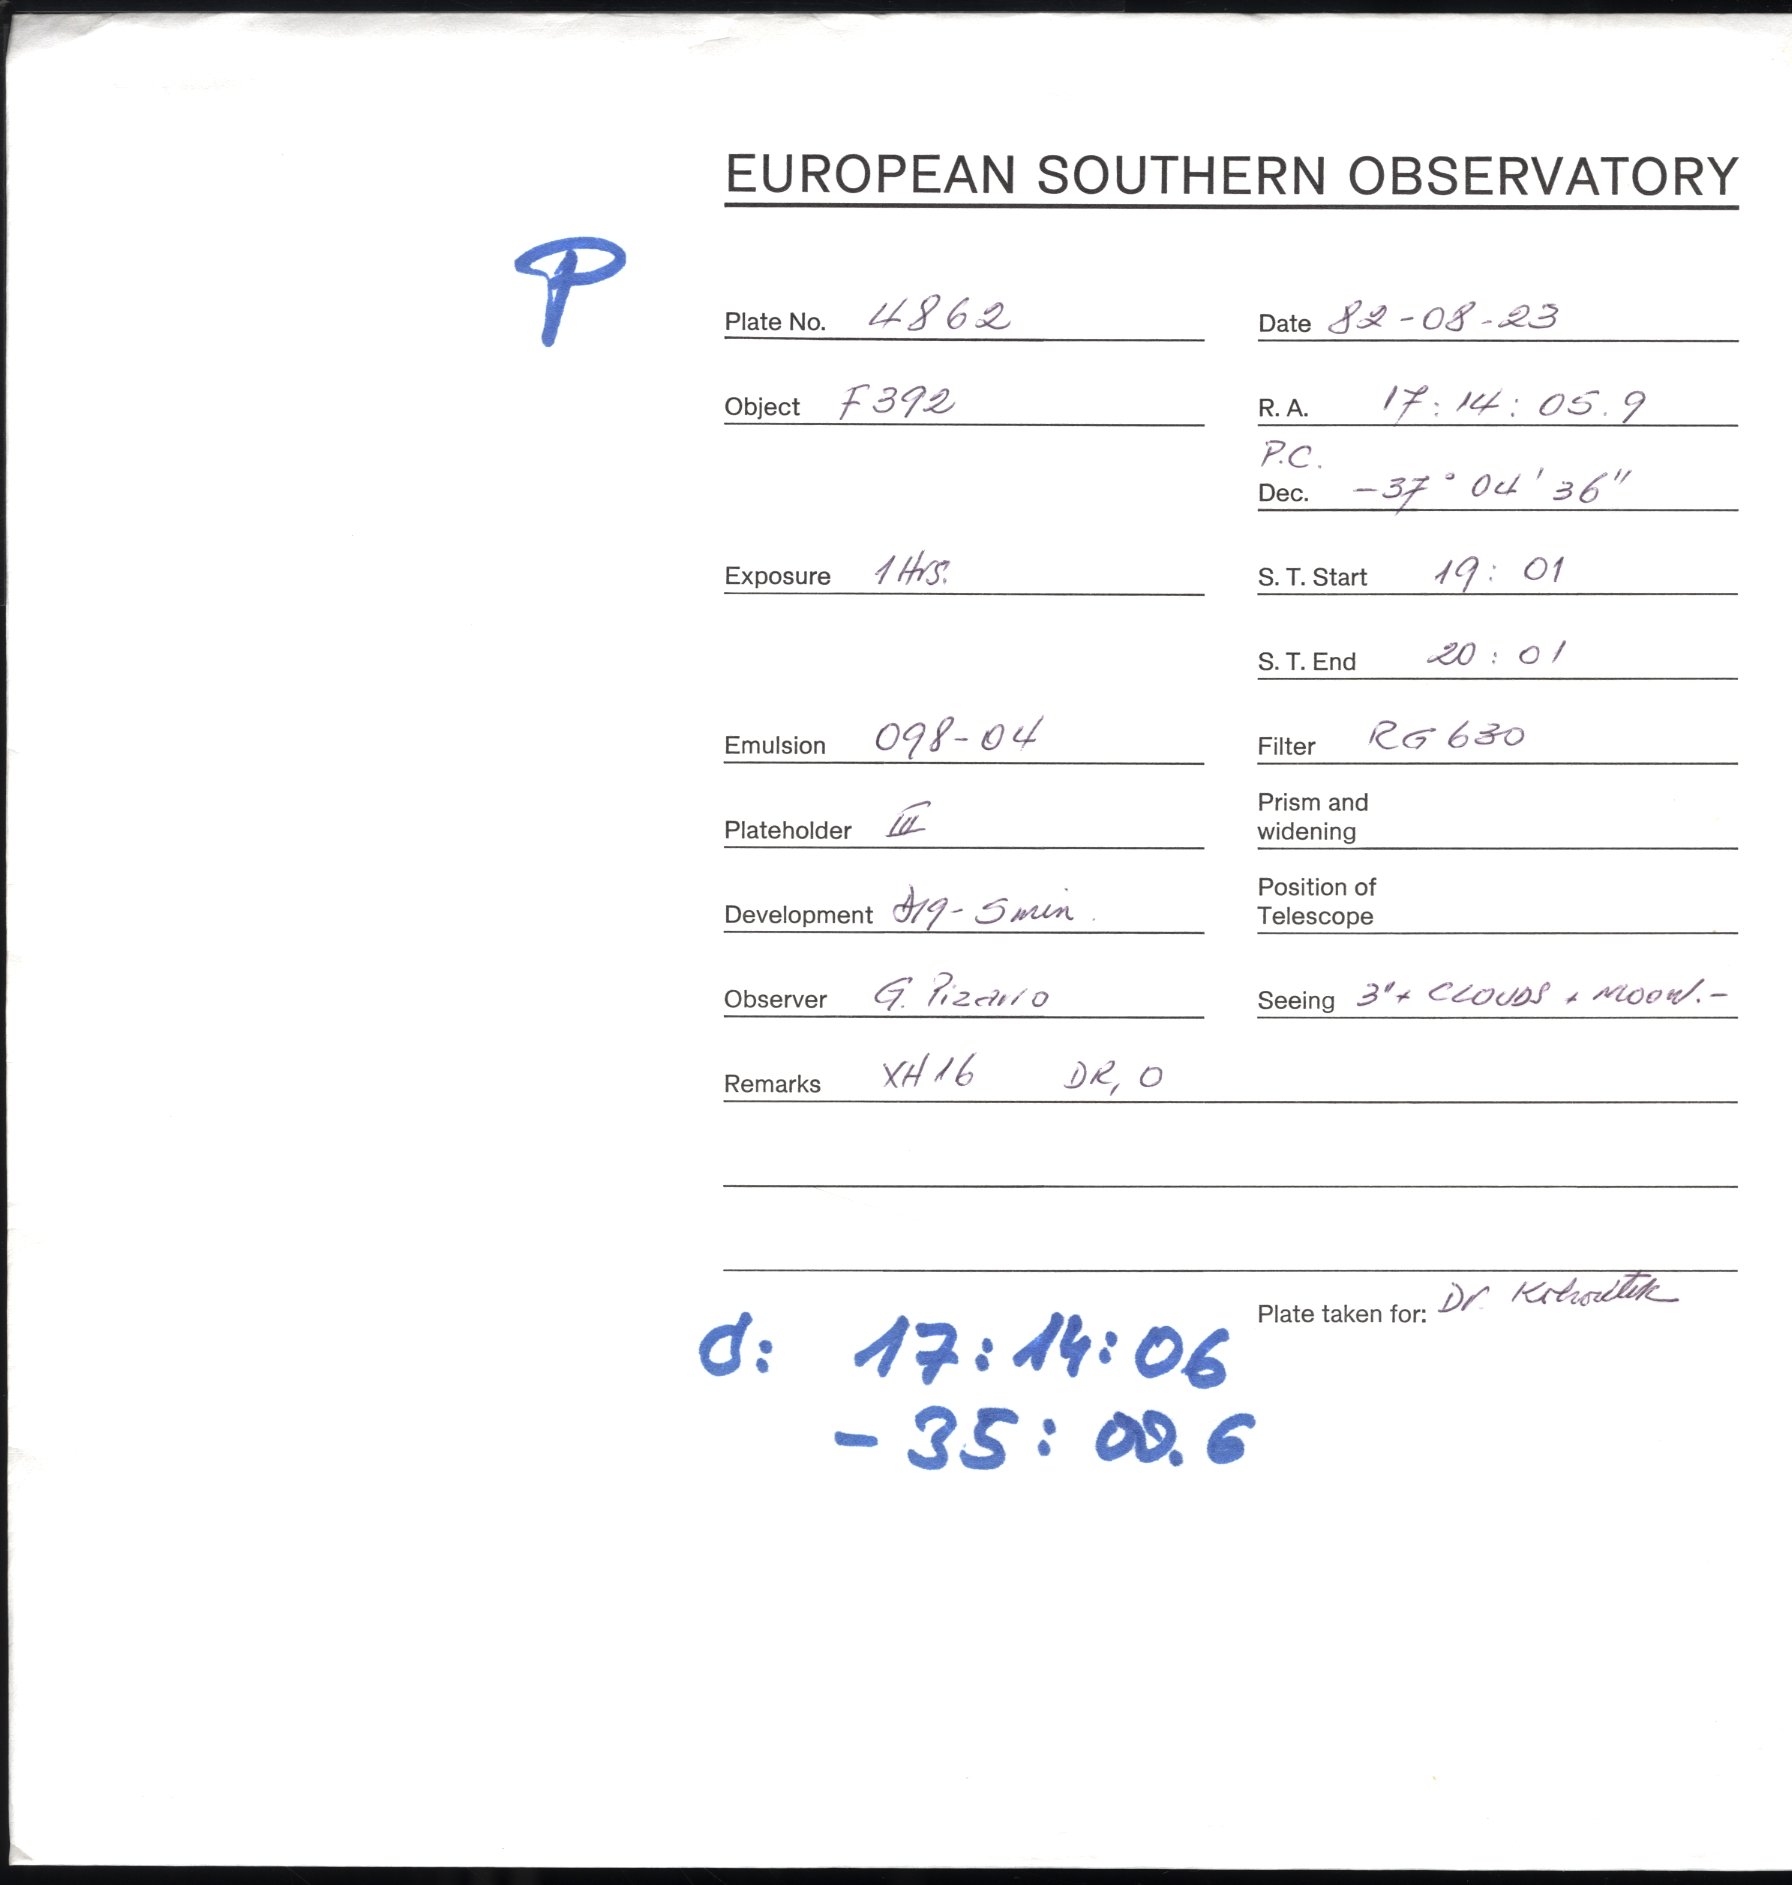 EUROPEAN SOUTHERN OBSERVATORY
P
Plate No. 4862 Date 82-08-23
Object F392 R. A. 17:14:05.9
P.C.
Dec. -37° 04' 36"
Exposure 1 Hrs. S. T. Start 19:01
S. T. End 20:01
Emulsion 098-04 Filter RG 630
Plateholder III Prism and widening
Development D19-5min. Position of Telescope
Observer G. Pizarro Seeing 3"+ CLOUDS + MOON.-
Remarks XH16 DR, 0
Plate taken for: Dr Kohoutek
d: 17:14:06
-35:00.6